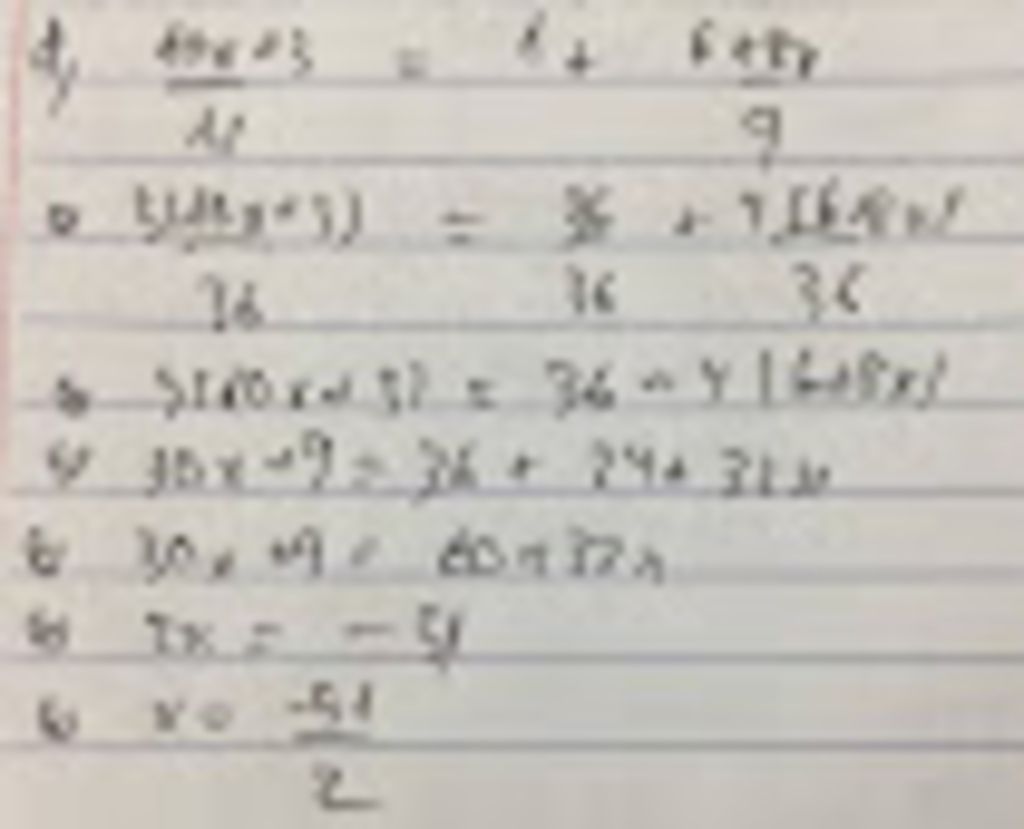 (10x+3)/12 = 1 + (6+8x)/9
⇔ 3(10x+3)/36 = 36/36 + 4(6+8x)/36
⇔ 3(10x+3) = 36 + 4(6+8x)
⇔ 30x+9 = 36 + 24+ 32x
⇔ 30x +9 = 60+32x
⇔ 2x = -51
⇔ x = -51/2